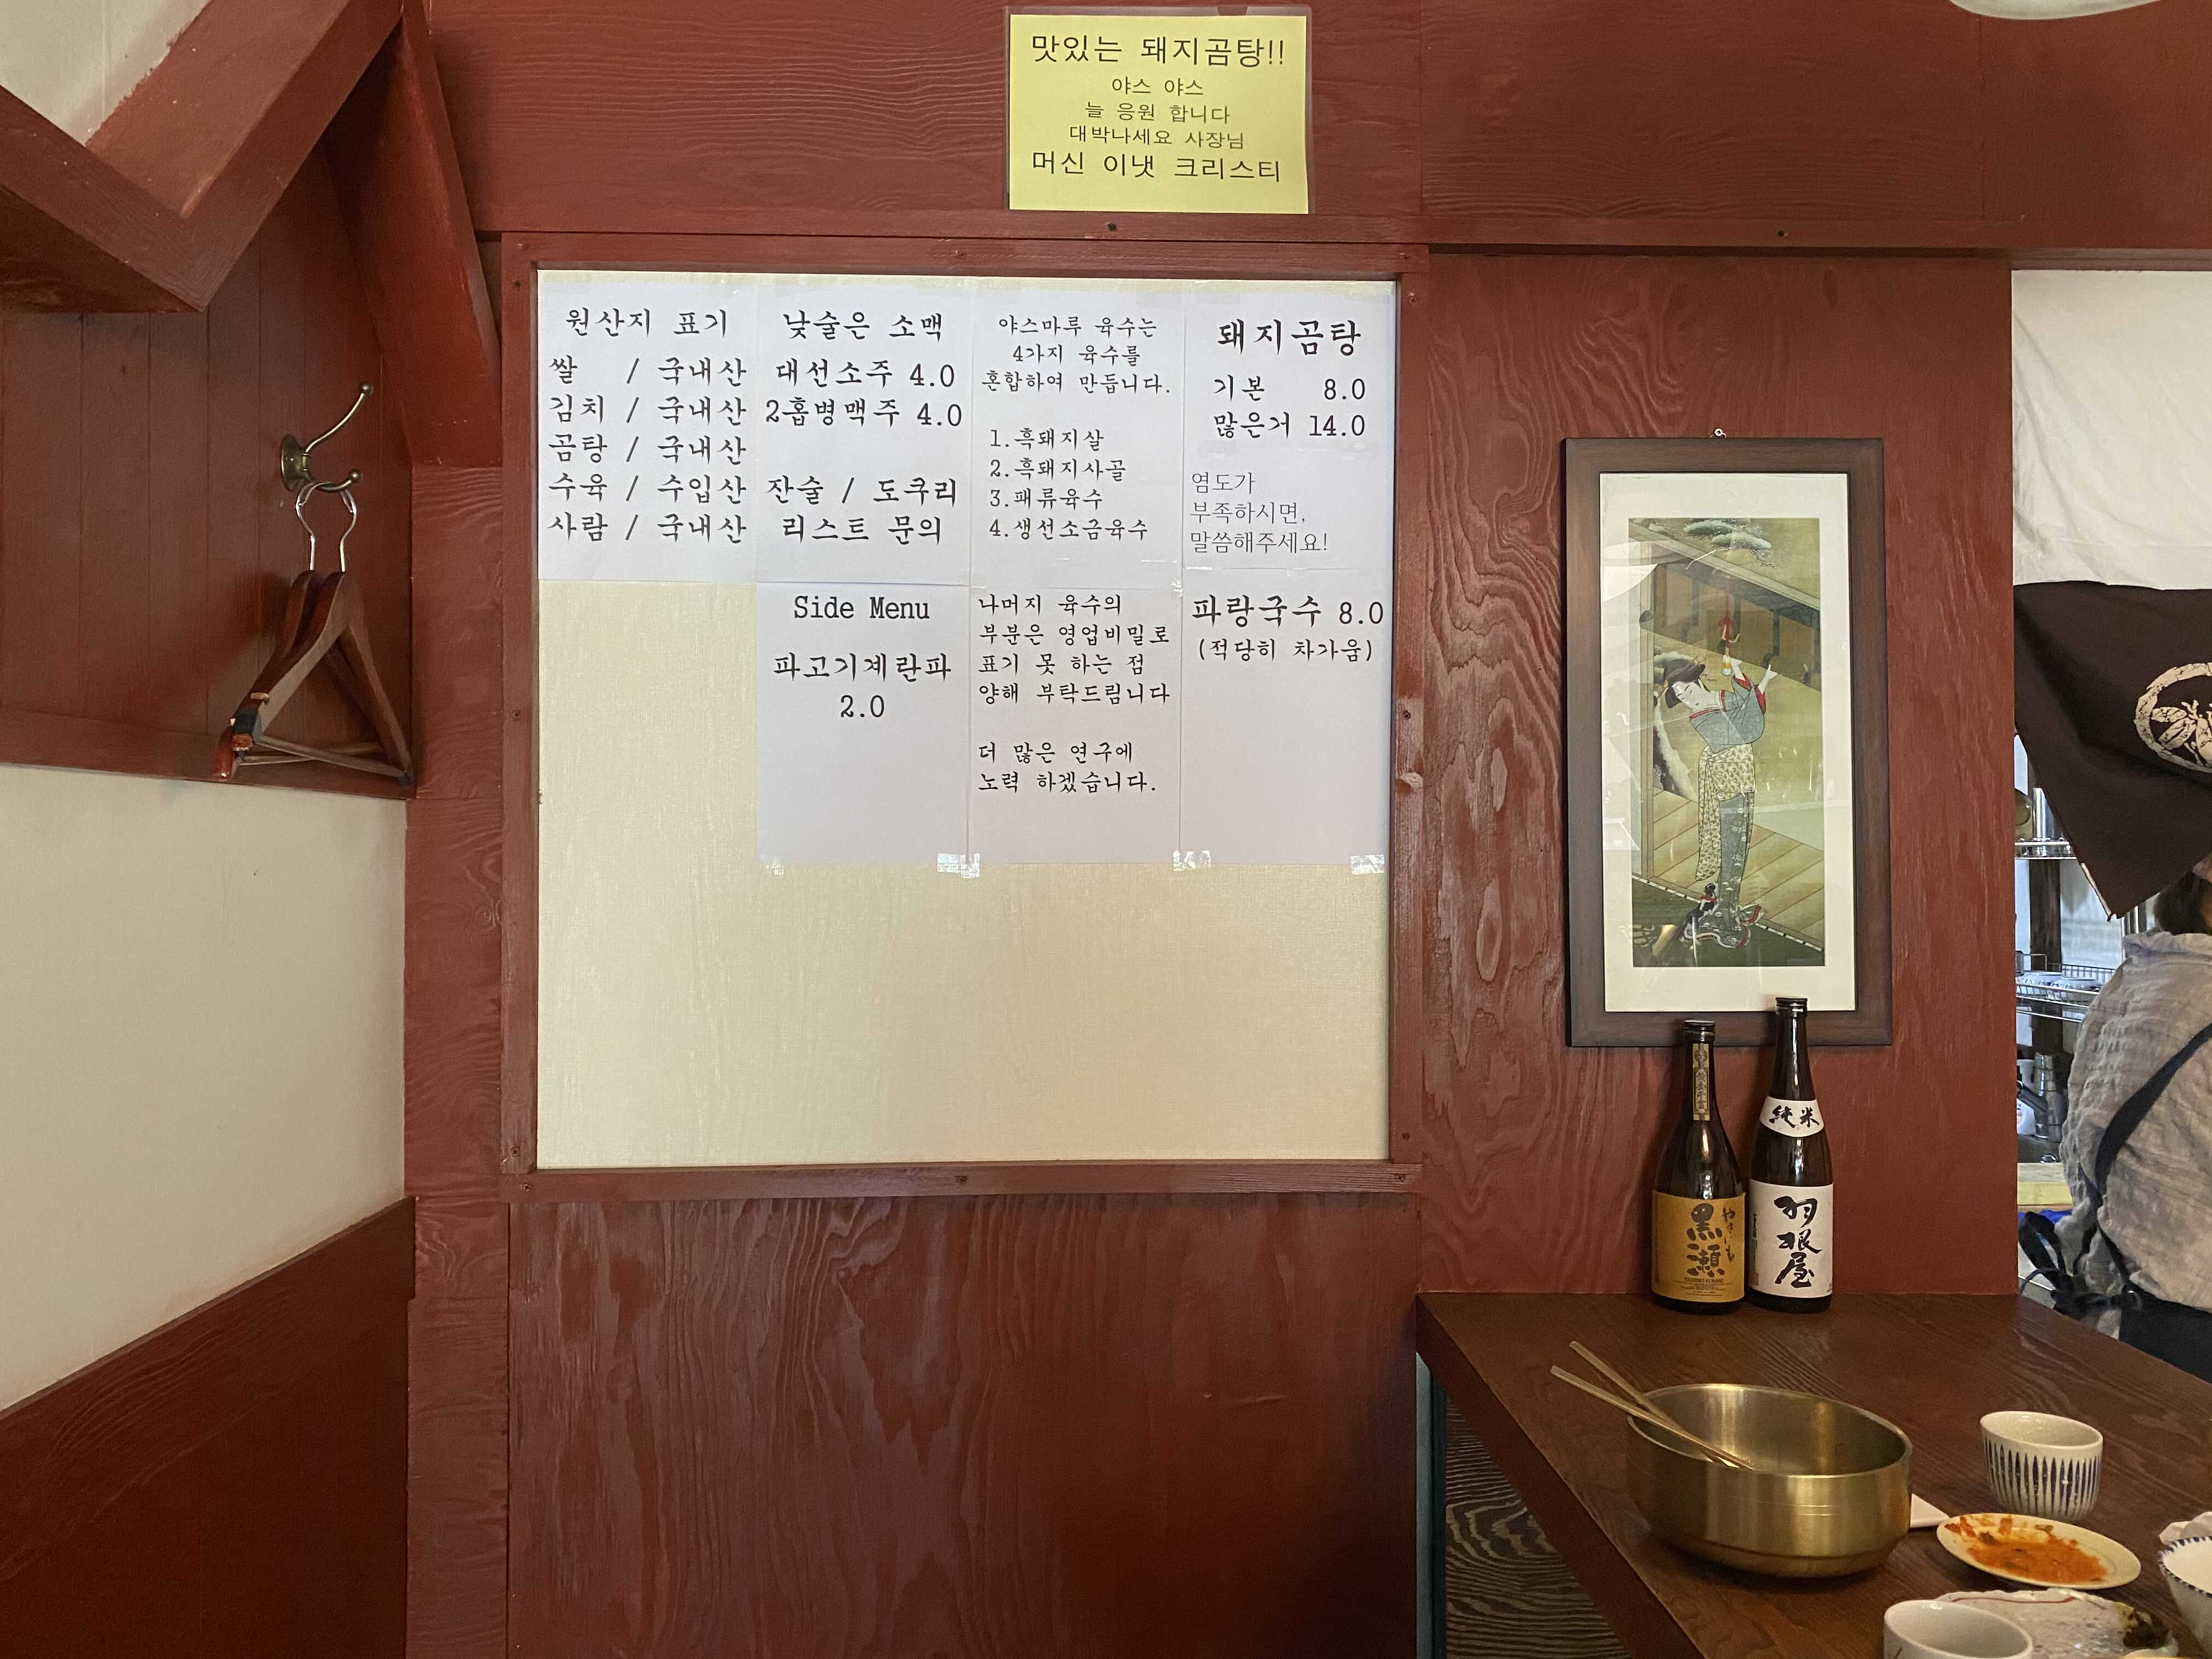 맛있는 돼지곰탕!!
야스 야스
늘 응원 합니다
대박나세요 사장님
머신 이냇 크리스티
원산지 표기
쌀 / 국내산
김치 / 국내산
곰탕 / 국내산
수육 / 수입산
사람 / 국내산
낮술은 소맥
대선소주 4.0
2홉병맥주 4.0
잔술 / 도쿠리
리스트 문의
야스마루 육수는
4가지 육수를
혼합하여 만듭니다.
1.흑돼지살
2.흑돼지사골
3.패류육수
4.생선소금육수
돼지곰탕
기본 8.0
많은거 14.0
염도가
부족하시면,
말씀해주세요!
Side Menu
파고기계란파
2.0
나머지 육수의
부분은 영업비밀로
표기 못 하는 점
양해 부탁드림니다
더 많은 연구에
노력 하겠습니다.
파랑국수 8.0
(적당히 차가움)
純米
羽根屋
やきいも
黒瀬